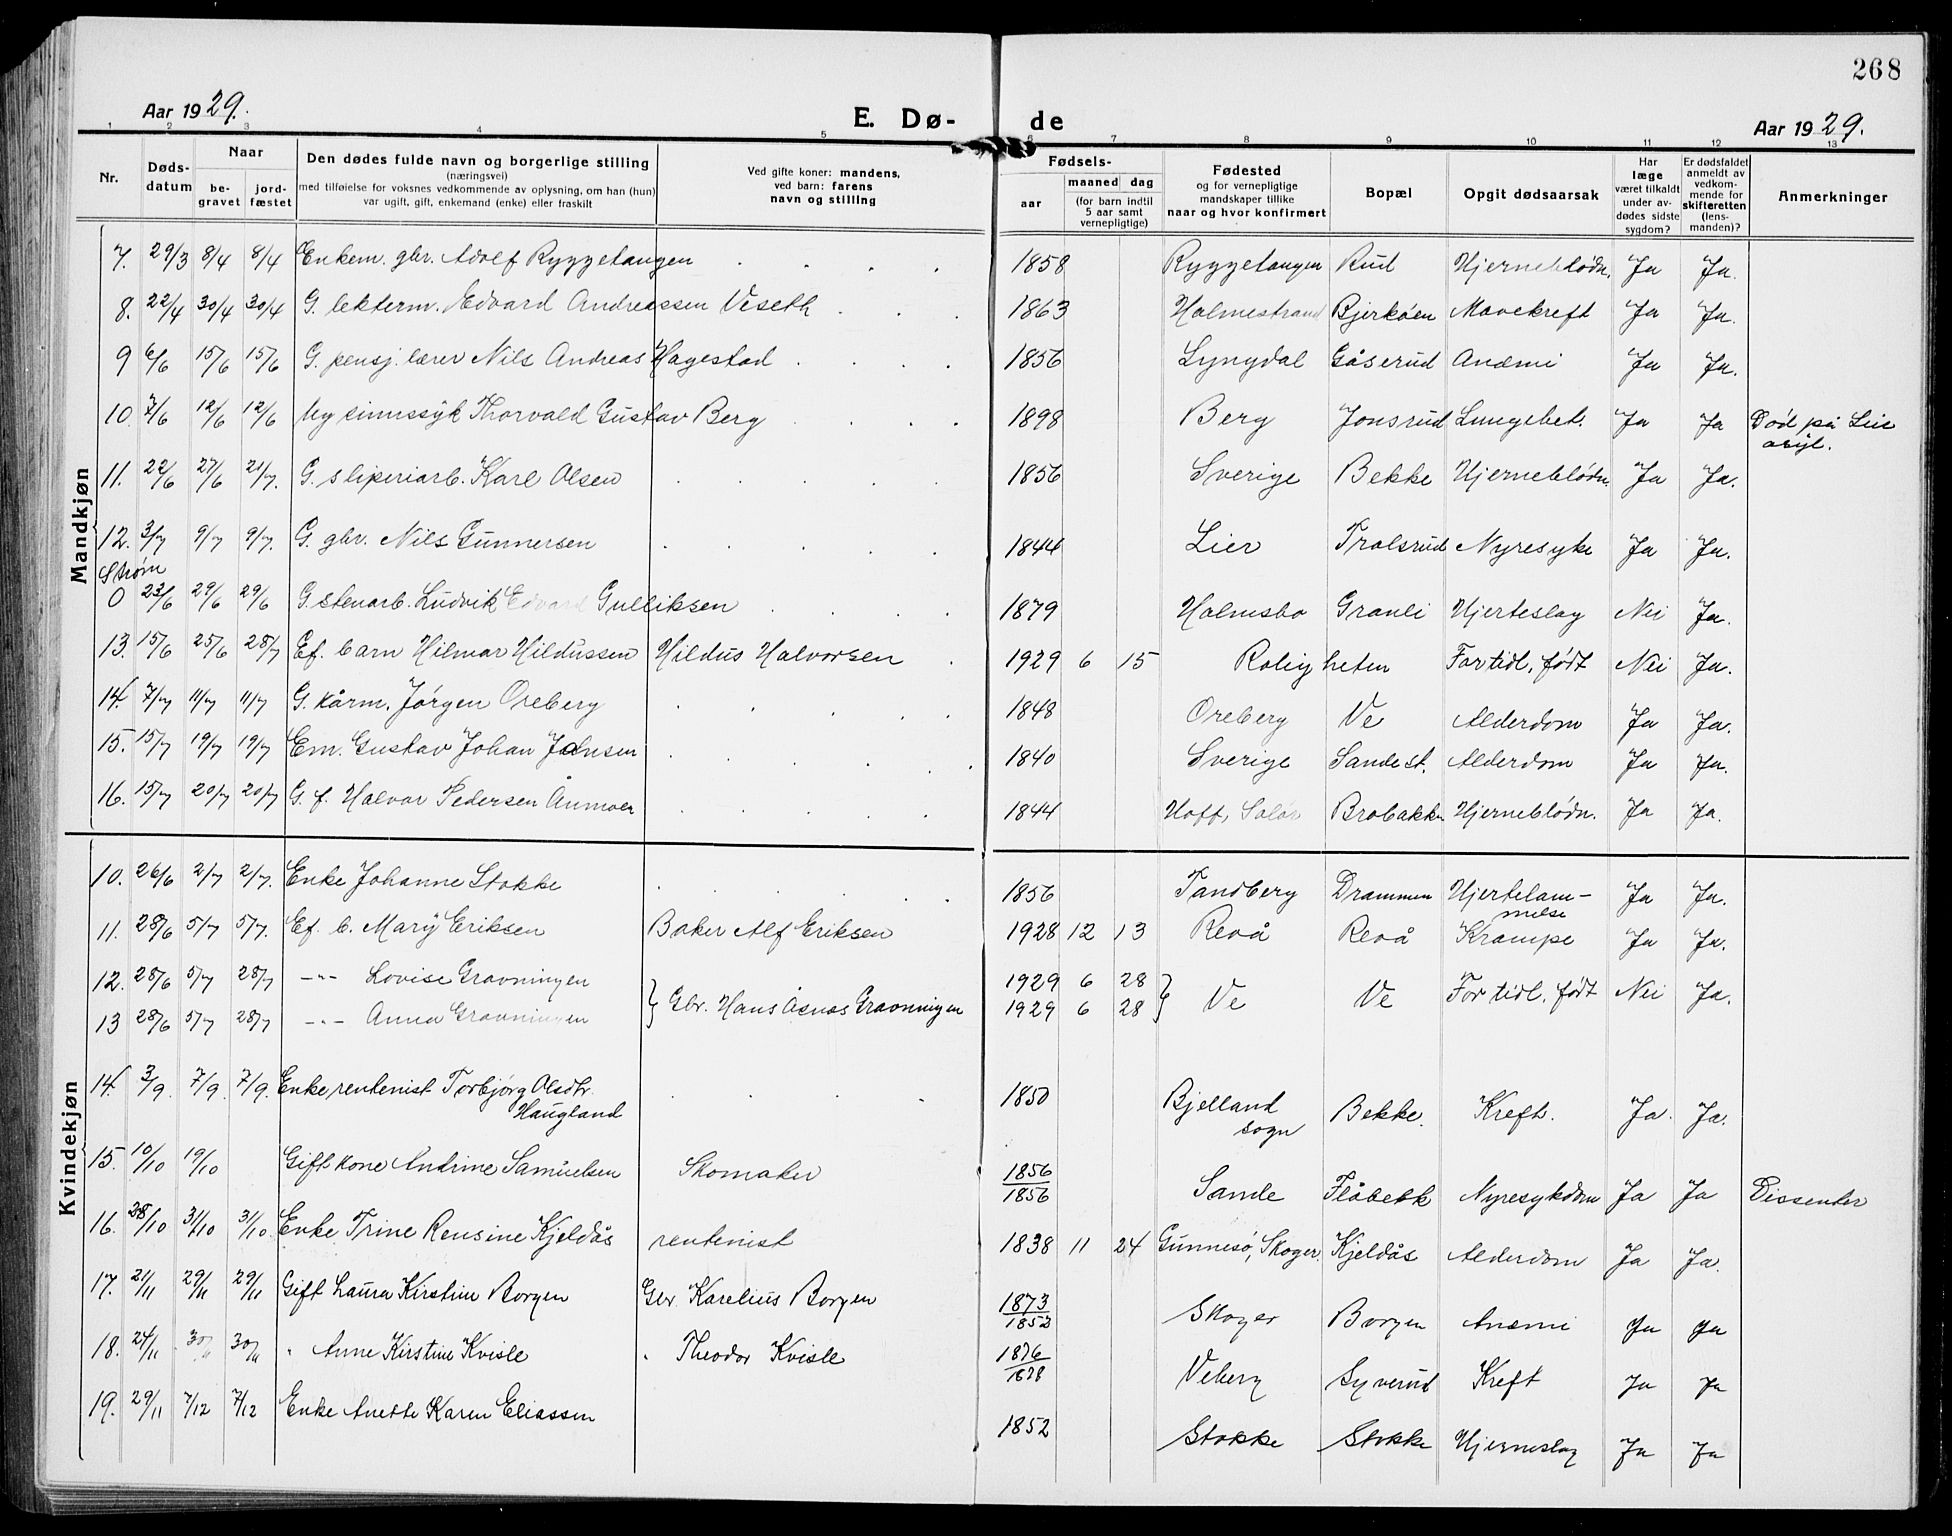 268
Aar 1929.
E. Dø-
de
Aar 1929.
1 2 3 4 5 6 7 8 9 10 11 12 13
Nr.
Døds-
datum
Naar
be-
gravet
jord-
fæstet
Den dødes fulde navn og borgerlige stilling
(næringsvei)
med tilføielse for voksnes vedkommende av oplysning, om han (hun)
var ugift, gift, enkemand (enke) eller fraskilt
Ved gifte koner: mandens,
ved barn: farens
navn og stilling
Fødsels-
aar
maaned dag
(for barn indtil
5 aar samt
vernepligtige)
Fødested
og for vernepligtige
mandskaper tillike
naar og hvor konfirmert
Bopæl
Opgit dødsaarsak
Har
læge
været tilkaldt
under av-
dødes sidste
sygdom?
Er dødsfaldet
anmeldt av
vedkom-
mende for
skifteretten
(lens-
manden)?
Anmerkninger
Mandkjøn
7. 29/3 8/4 8/4 Enkem. gbr. Adolf Ryggetangen 1858 Ryggetangen Rud Hjerneblødn. Ja Ja.
8. 22/4 30/4 30/4 G. lekterm. Edvard Andreassen Veseth 1863 Holmestrand Bjerköen Mavekreft Ja Ja.
9 6/6 15/6 15/6 G. pensj. lærer Nils Andreas Hagestad 1856 Lyngdal Gåserud Anæmi Ja Ja.
10. 7/6 12/6 12/6 Ug sinnssyk Thorvald Gustav Berg 1898 Berg Jonsrud Lungebet. Ja Ja Död på Lier
asyl.
11. 22/6 27/6 21/7. G. sliperiarb. Karl Olsen 1856 Sverige Bekke Hjerneblödn. Ja Ja.
12. 3/7 9/7 9/7. G. gbr. Nils Gunnersen 1844 Lier Trolsrud Nyresyke Ja Ja.
Strøm
0 23/6 29/6 29/6 G. stenarb. Ludvik Edvard Gulliksen 1879 Holmsbo Granli Hjerteslag Nei Ja.
13. 15/6 25/6 28/7 Ef. barn Hilmar Hildussen Hildus Halvorsen 1929 6 15 Roligheten For tidl. født Nei Ja.
14. 7/7 11/7 11/7 G. kårm. Jørgen Oreberg 1848 Oreberg Ve Alderdom Ja Ja.
15. 15/7 19/7 19/7 Em. Gustav Johan Johnsen 1840 Sverige Sande st. Alderdom Ja Ja.
16. 15/7 20/7 20/7 G. f. Halvor Pedersen Ånmoen 1844 Hoff, Solør Brobakken Hjerneblødn. Ja Ja.
Kvindekjøn
10. 26/6 2/7 2/7. Enke Johanne Stokke 1856 Tandberg Drammen Hjertelam-
melse Ja Ja.
11. 28/6 5/7 5/7. Ef. b. Marÿ Eriksen Baker Alf Eriksen 1928 12 13 Revå Revå Krampe Ja Ja.
12. 28/6 5/7 28/7 -"- Lovise Gravningen 1929 6 28
13 28/6 5/7 28/7 -"- Anna Gravningen } Gbr. Hans Åsnæs Gravningen 1929 6 28 } Ve Ve For tidl. født Nei Ja.
14. 3/9. 7/9. 7/9. Enke rentenist Torbjørg Olsdtr.
Haugland 1850 Bjelland
sogn Bekke. Kreft. Ja. Ja.
15. 10/10 19/10 Gift kone Andrine Samuelsen Skomaker 1856/1856 Sande Flåbekk Nyresykdom Ja Ja Dissenter
16. 28/10 31/10 31/10. Enke Trine Rensine Kjeldås rentenist 1838 11 24 Gunnesø, Skoger. Kjeldås Alderdom Ja Ja.
17. 21/11 29/11 29/11 Gift Laura Kirstine Borgen Gbr. Karelius Borgen 1873/1852 Skoger Borgen Anæmi Ja Ja
18. 24/11 30/11 30/11 " Anne Kirstine Kvisle " Theodor Kvisle 1876/1878 Veberg Syverud Kreft Ja Ja
19. 29/11 7/12 7/12 Enke Anette Karen Eliassen 1852 Stokke Stokke Hjerneslag Ja Ja